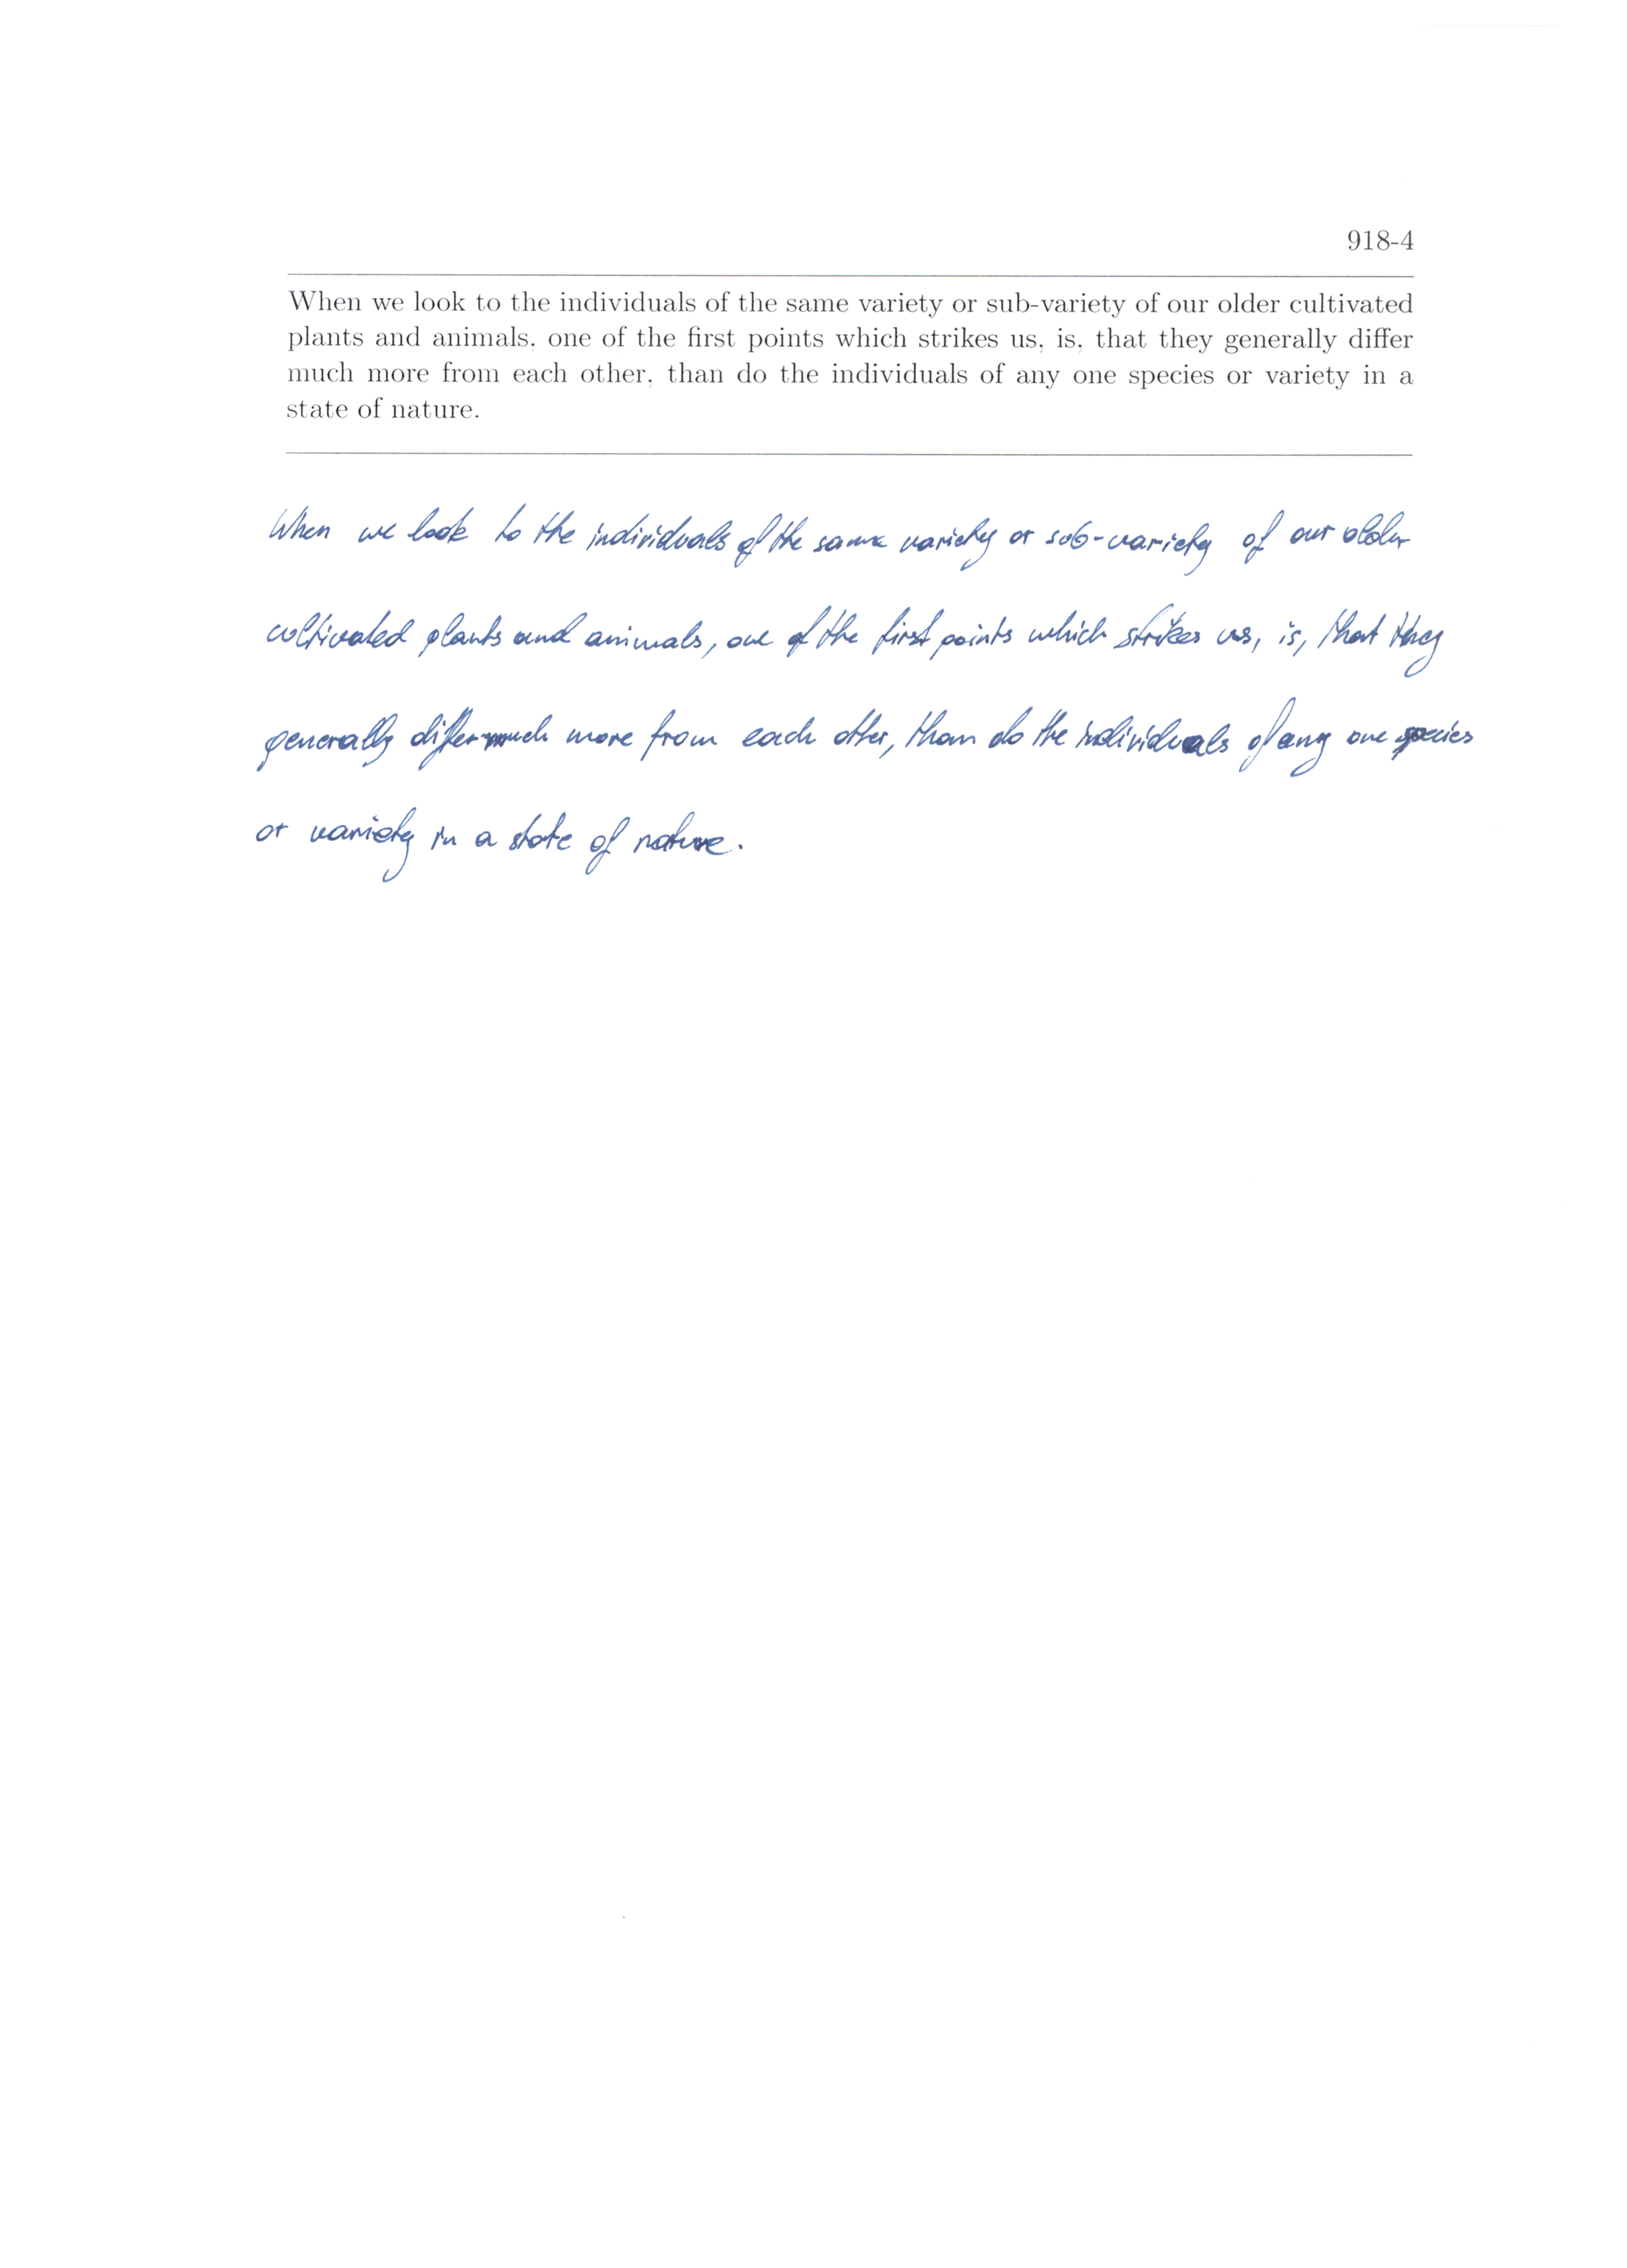 918-4
When we look to the individuals of the same variety or sub-variety of our older cultivated
plants and animals, one of the first points which strikes us, is, that they generally differ
much more from each other, than do the individuals of any one species or variety in a
state of nature.
When we look to the individuals of the same variety or sub-variety of our older
cultivated plants and animals, one of the first points which strikes us, is, that they
generally differ much more from each other, than do the individuals of any one species
or variety in a state of nature.